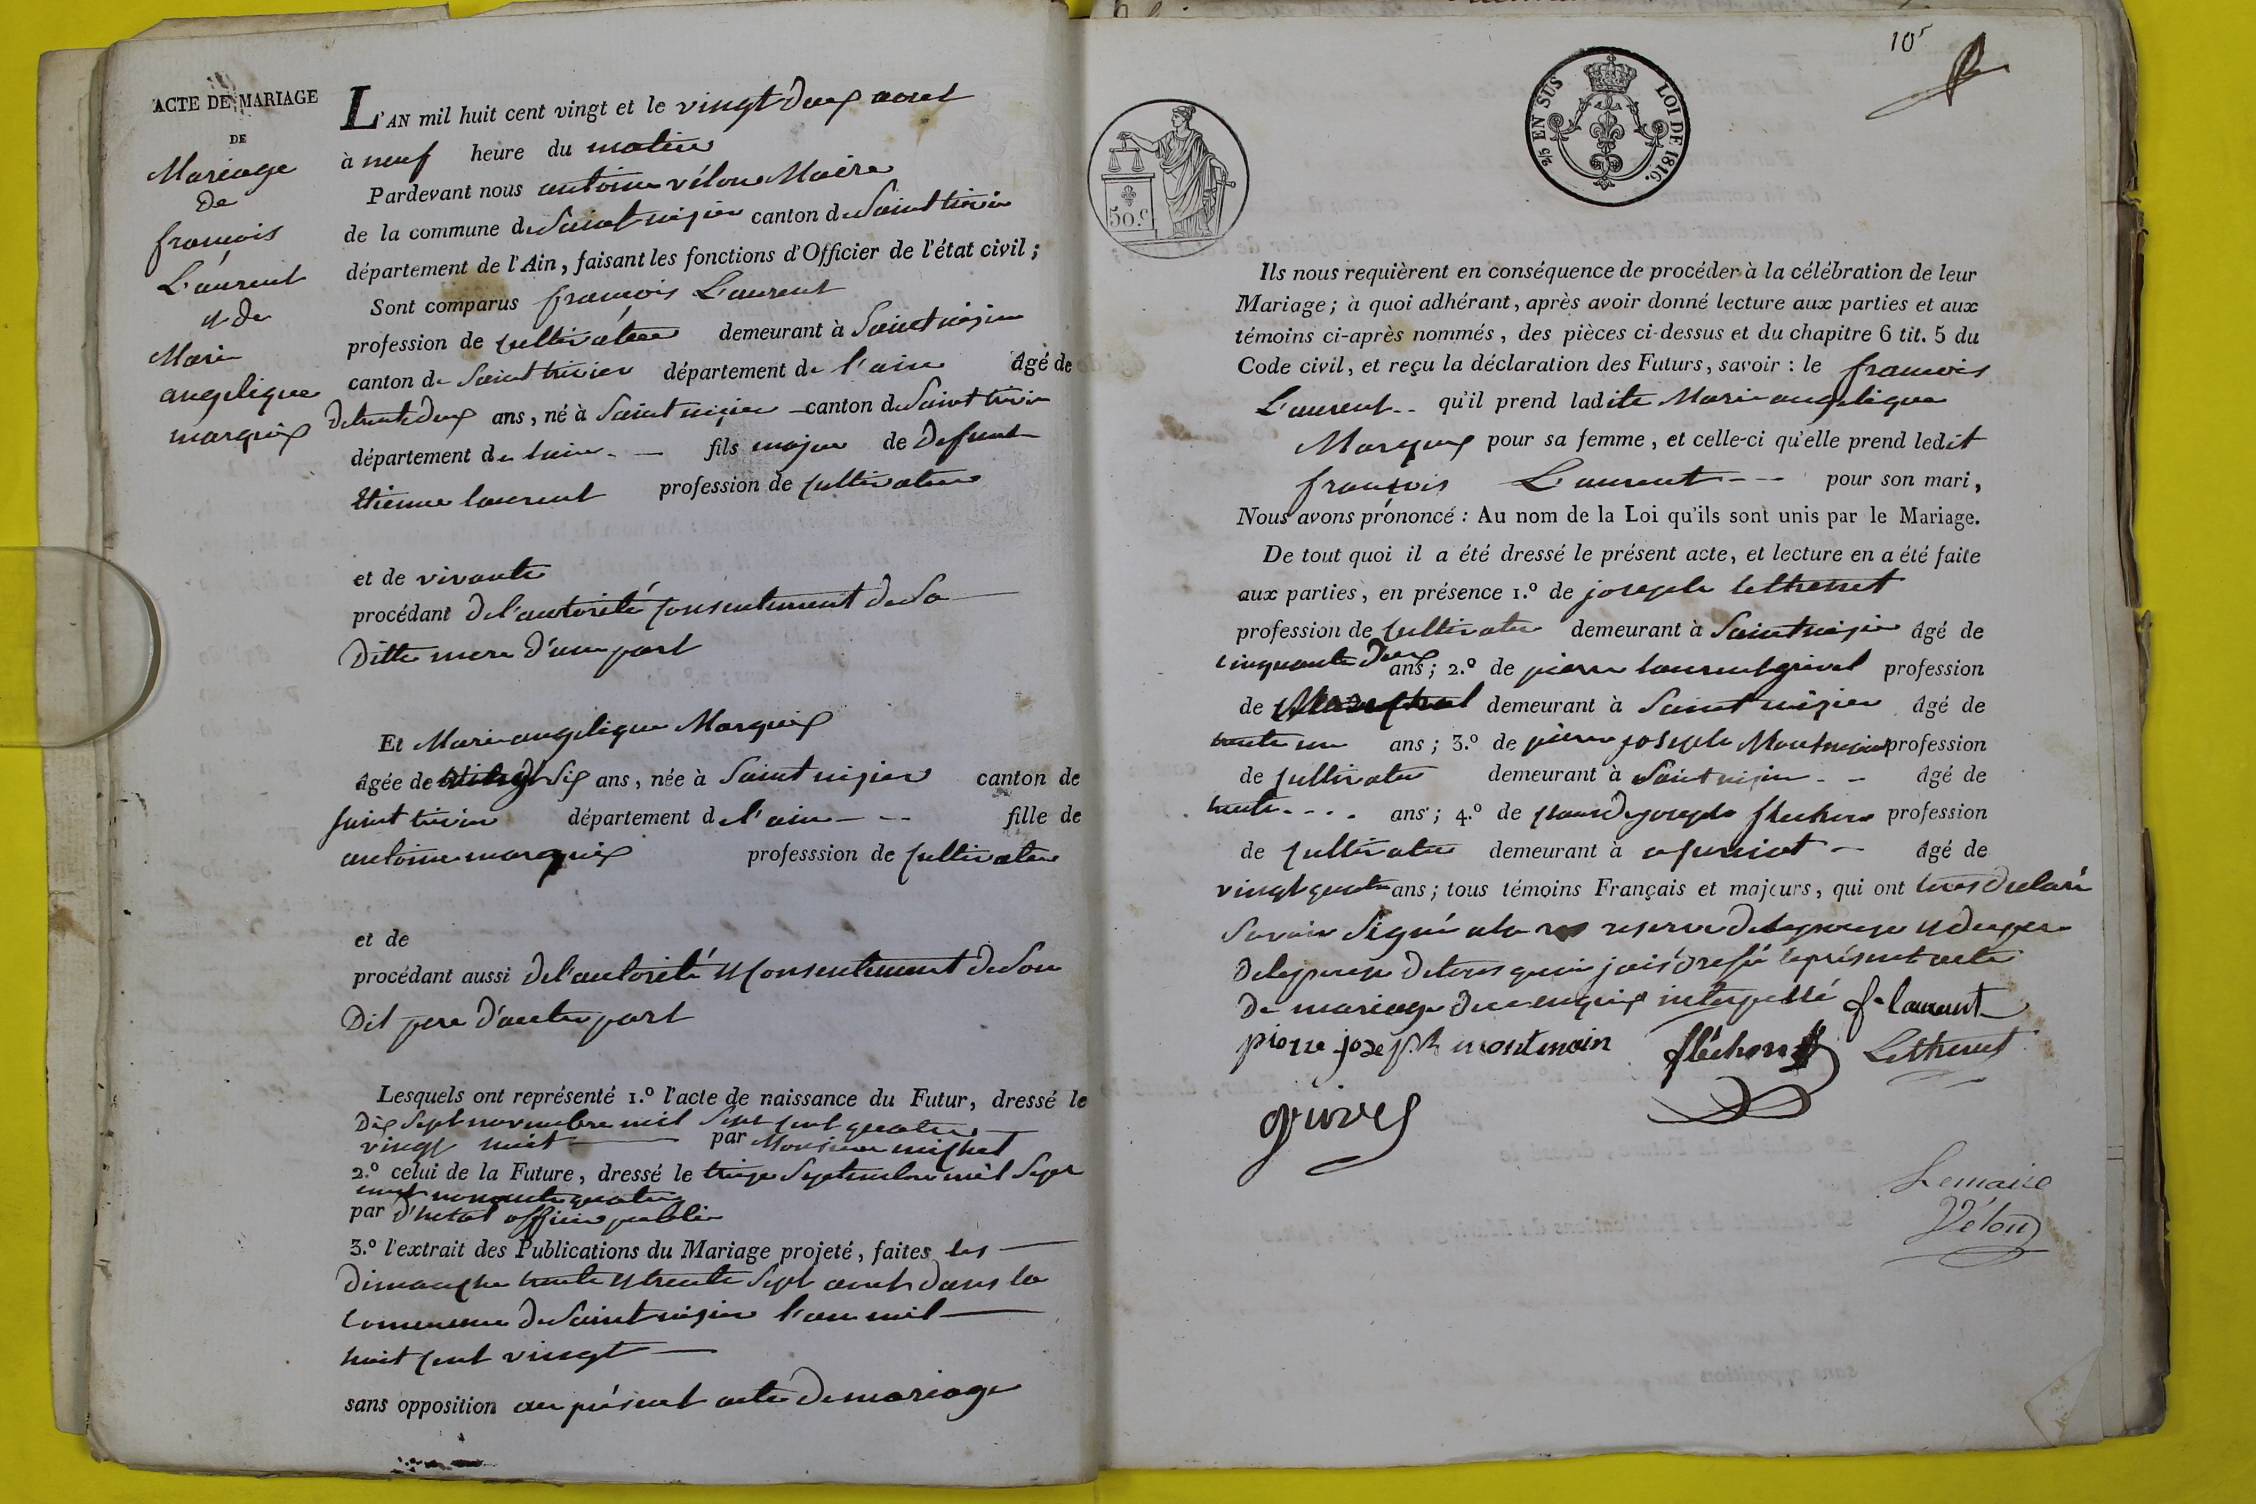 ACTE DE MARIAGE
DE
Mariage
de
françois
Laurent
et de
Marie
angelique
marquis
L'AN mil huit cent vingt et le vingt deux aout
à neuf heure du matin
Pardevant nous antoine vélon Maire
de la commune de Saint nizier canton de Saint trivier
département de l'Ain, faisant les fonctions d'Officier de l'état civil ;
Sont comparus françois Laurent
profession de cultivateur demeurant à Saint nizier
canton de Saint trivier département de l'ain âgé de
de trente deux ans, né à Saint nizier canton de Saint trivier
département de lain fils majeur de defunt
Etienne laurent profession de cultivateur
et de vivante
procédant de l'autorité consentement de Sa
Ditte mere d'une part
Et Marie angelique Marquis
âgée de vingt six ans, née à Saint nizier canton de
saint trivier département de l'ain fille de
antoine marquis professsion de cultivateur
et de
procédant aussi de l'autorité et consentement de Son
Dit pere d'autre part
Lesquels ont représenté 1.º l'acte de naissance du Futur, dressé le
Dix Sept novembre mil Sept cent quatre
vingt huit par Monsieur michel
2.º celui de la Future, dressé le treize Septembre mil Sept
cent nonante quatre
par d'hetat officier public
3.º l'extrait des Publications du Mariage projeté, faites les
Dimanche trente et trente Sept aout dans la
Commune de Saint nizier l'an mil
huit cent vingt
sans opposition au présent acte de mariage
10
2/5 EN SUS LOI DE 1816.
50.c
Ils nous requièrent en conséquence de procéder à la célébration de leur
Mariage ; à quoi adhérant, après avoir donné lecture aux parties et aux
témoins ci-après nommés, des pièces ci-dessus et du chapitre 6 tit. 5 du
Code civil, et reçu la déclaration des Futurs, savoir : le francois
Laurent qu'il prend ladite Marie angelique
Marquis pour sa femme, et celle-ci qu'elle prend ledit
françois Laurent pour son mari,
Nous avons prononcé : Au nom de la Loi qu'ils sont unis par le Mariage.
De tout quoi il a été dressé le présent acte, et lecture en a été faite
aux parties, en présence 1.º de joseph lethenet
profession de cultivateur demeurant à Saint nizier âgé de
cinquante deux ans ; 2.º de pierre laurent grivel profession
de demeurant à Saint nizier âgé de
trente un ans ; 3.º de pierre joseph Montmain profession
de cultivateur demeurant à Saint nizier âgé de
trente ans ; 4.º de claude joseph flechon profession
de cultivateur demeurant à âgé de
vingt quatre ans ; tous témoins Français et majeurs, qui ont tous déclaré
Savoir Signé a la reserve de lepouse et du pere
de lepouse de tous quoi jai dressé le présent acte
de mariage de ce enquis interpellé f. laurent
pierre joseph montmain fléchon Lethenet
grivel
Le maire
Vélon